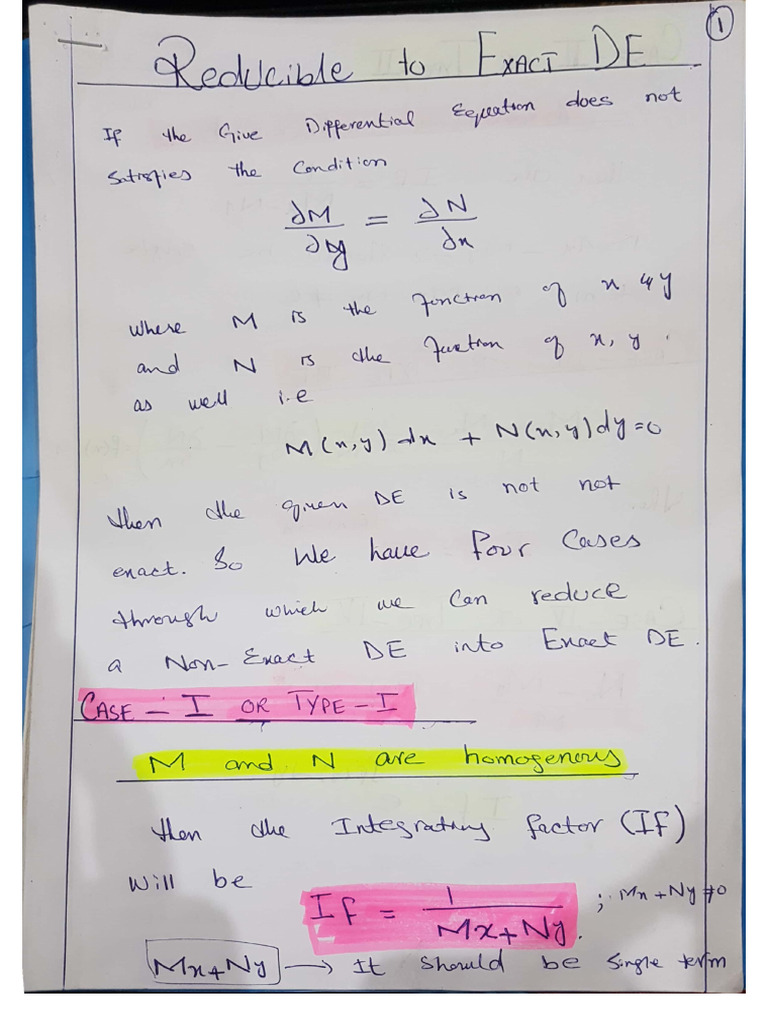 1
Reducible to Exact DE
If the Give Differential Equation does not
Satisfies the Condition
∂M/∂y = ∂N/∂x
where M is the function of x & y
and N is the function of x, y.
as well i.e
M(x,y) dx + N(x,y) dy = 0
then the given DE is not not
exact. So We have four Cases
through which we can reduce
a Non-Exact DE into Exact DE.
CASE - I OR TYPE - I
M and N are homogenous
then the Integrating factor (IF)
will be
IF = 1/(Mx+Ny). ; Mx+Ny≠0
Mx+Ny → It should be single term